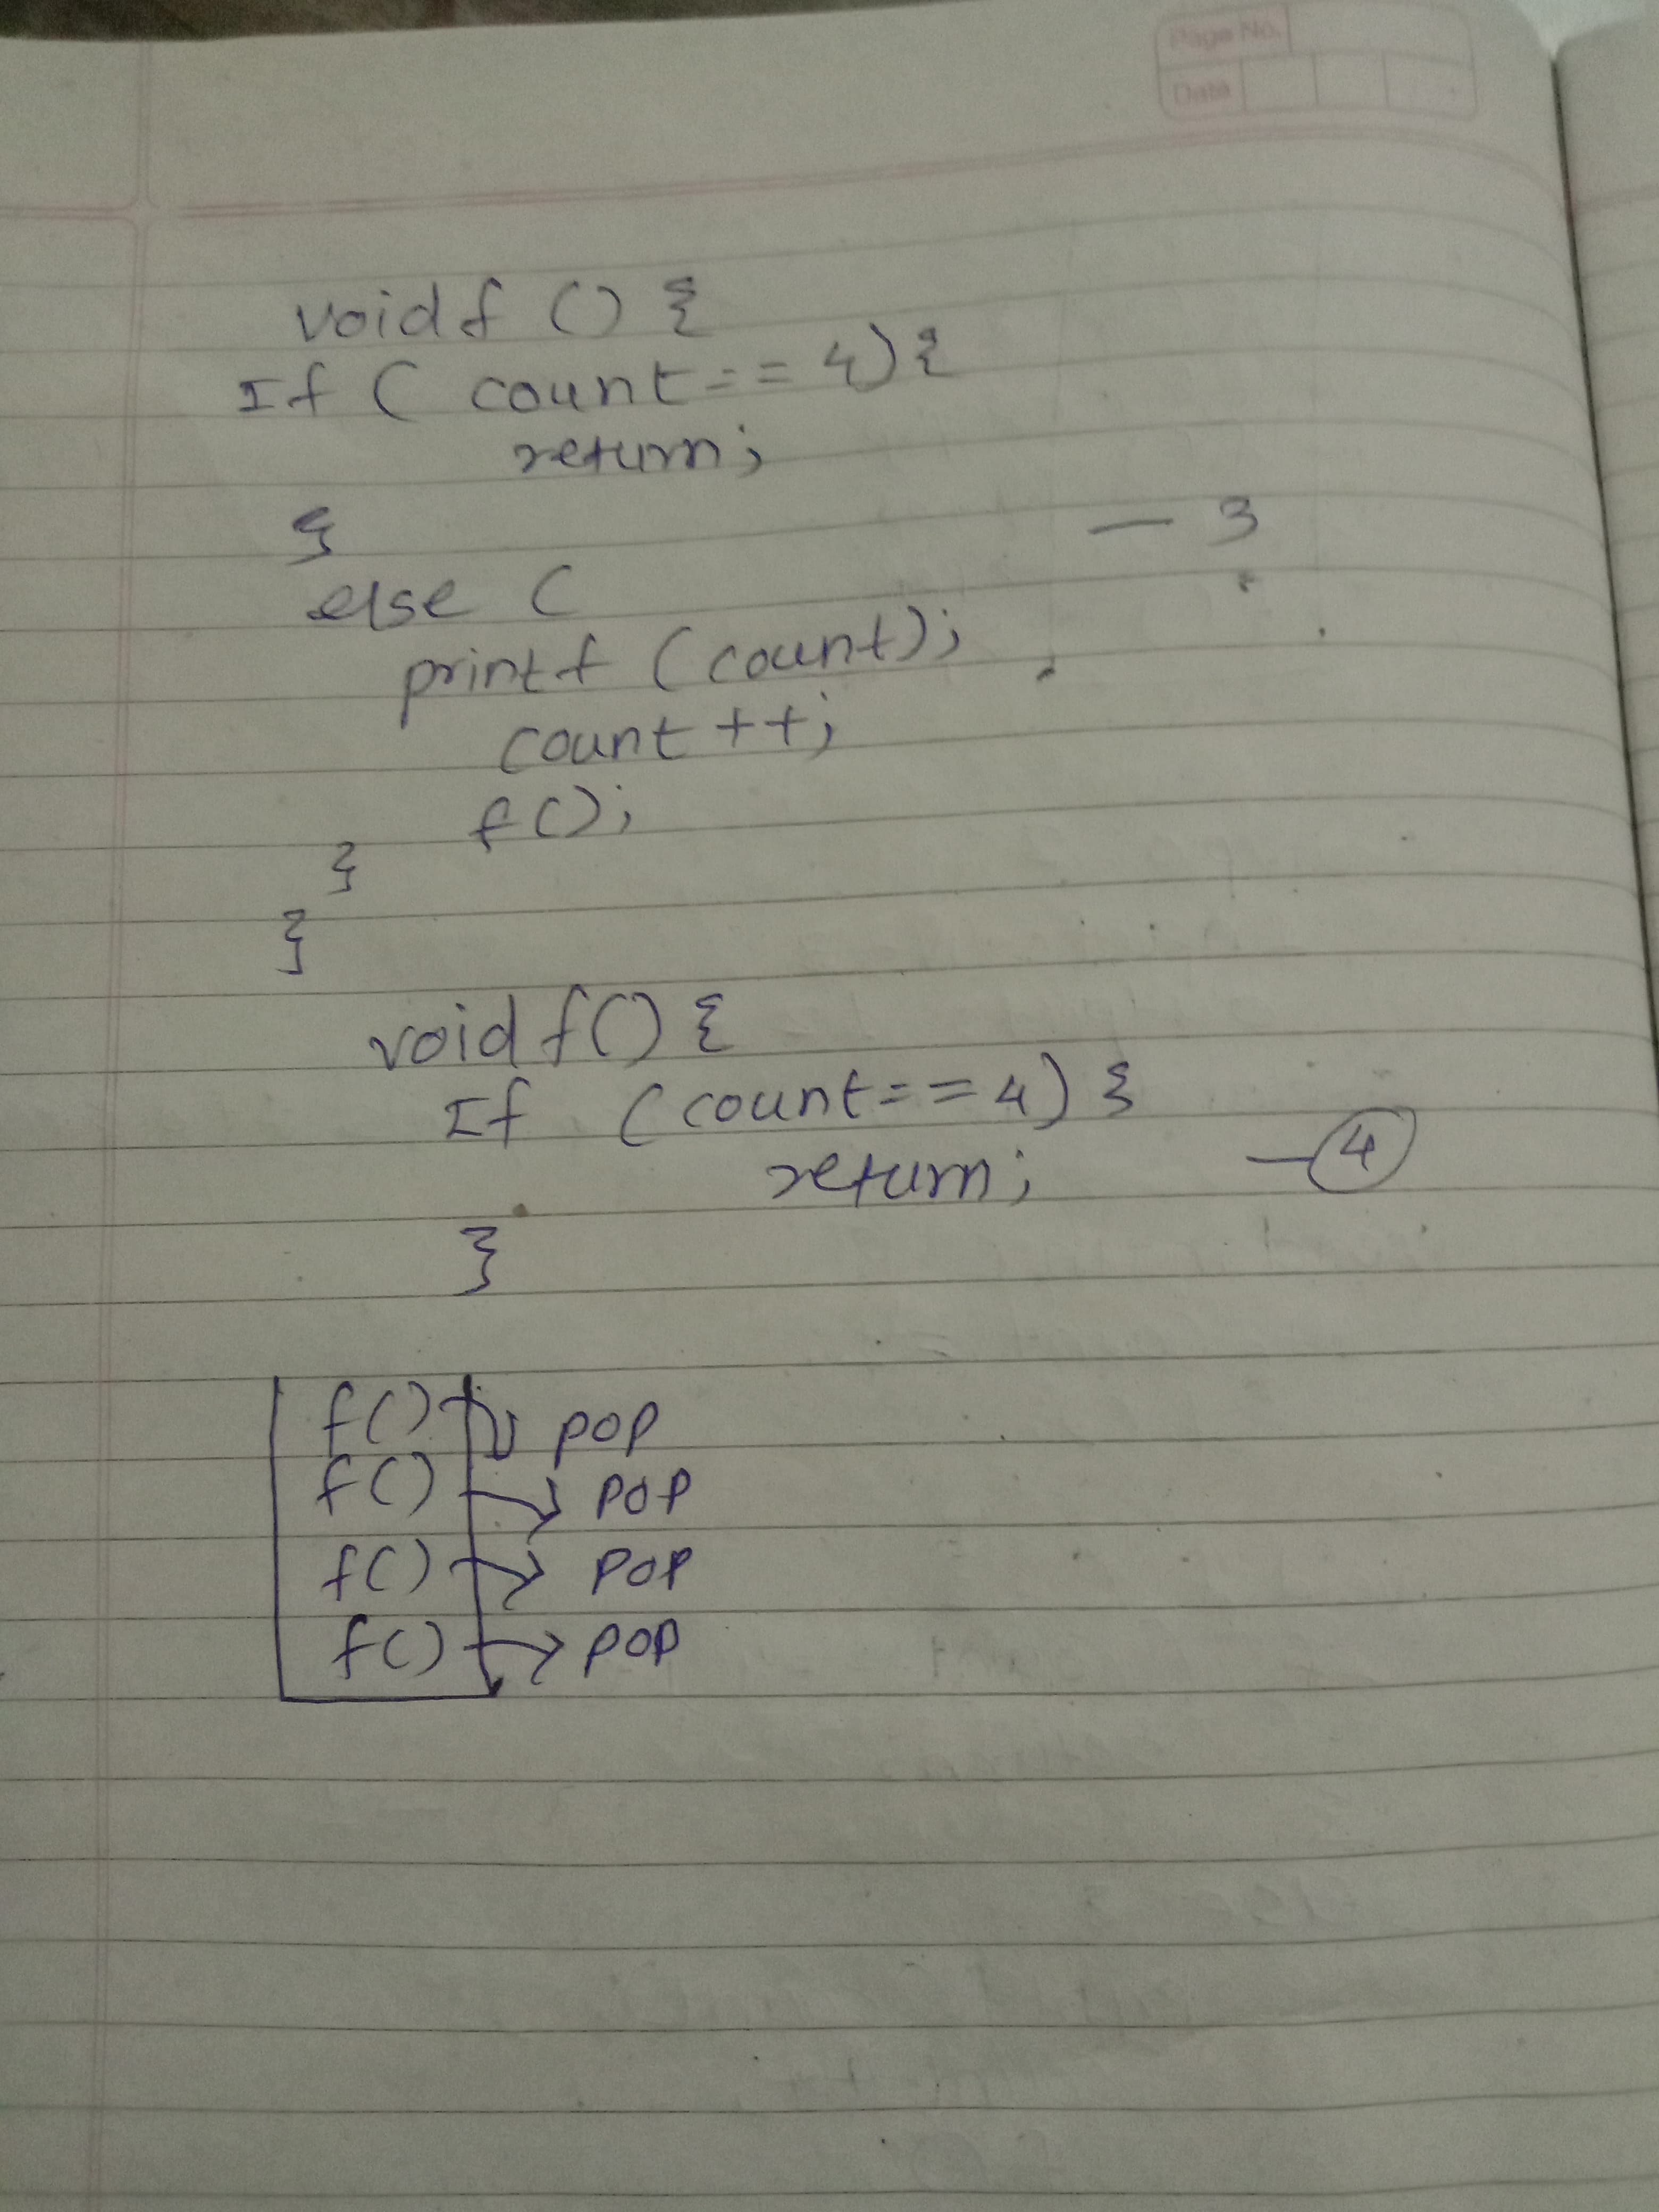 Page No.
Date
void f () {
If ( count == 4) {
return;
}
— 3
else (
printf (count);
count ++;
f();
}
}
void f() {
If (count == 4) {
return;
— 4
}
f() pop
f() pop
f() pop
f() pop